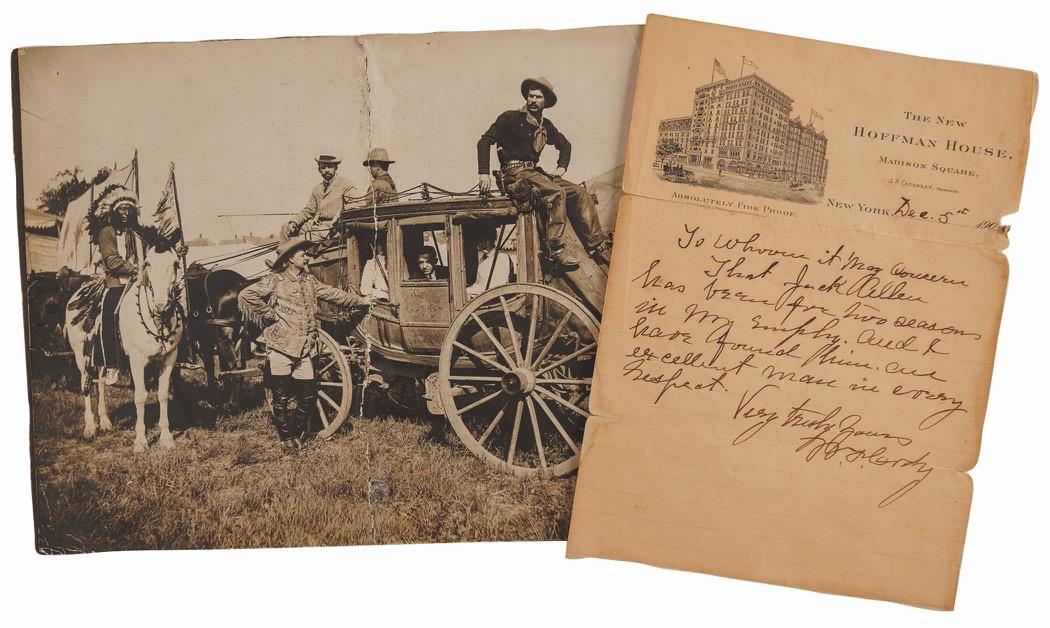 THE NEW
HOFFMAN HOUSE,
MADISON SQUARE,
J. P. CADDAGAN, MANAGER
ABSOLUTELY FIRE PROOF.
NEW YORK, Dec. 5th 190
To Whom it May Concern
That Jack Allen
has been for two seasons
in My Employ. and I
have found him. an
excellent man in every
respect.
Very truly Yours
W. F. Cody